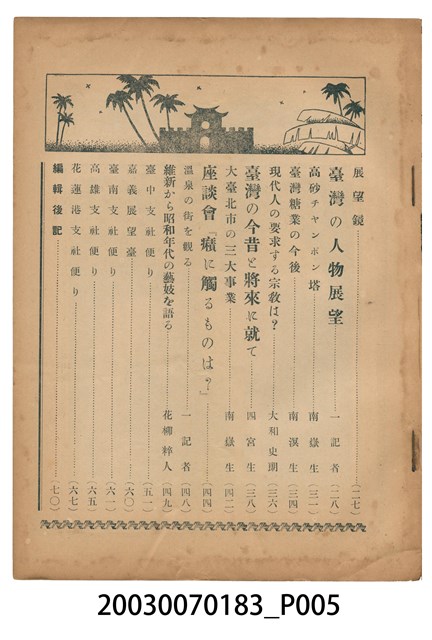 展望鏡……（二七）
臺灣の人物展望……一記者（二八）
高砂チャンポン塔……南嶽生（三一）
臺灣糖業の今後……南溟生（三四）
現代人の要求する宗敎は？……大和史瑚（三六）
臺灣の今昔と將來に就て……四宮生（三八）
大臺北市の三大事業……南嶽生（四二）
座談會『癪に觸るものは？』……（四四）
溫泉の街を觀る……一記者（四八）
維新から昭和年代の藝妓を語る……花柳粹人（四九）
臺中支社便り……（五一）
嘉義展望臺……（六〇）
臺南支社便り……（六一）
高雄支社便り……（六五）
花蓮港支社便り……（六七）
編輯後記……（七〇）
20030070183_P005